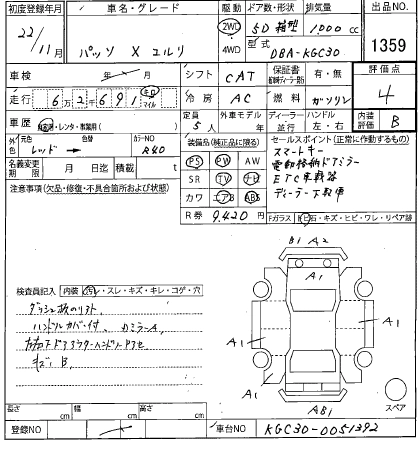 初度登録年月 車名・グレード 駆動 ドア数・形状 排気量 出品NO
22/11月 パッソ X ユルリ 2WD 4WD 5D 箱型 1000 cc 1359
型式 DBA-KGC30
車検 年 月 シフト CAT 保証書 有・無 評価点 4
走行 62691 キロ マイル 冷房 AC 燃料 ガソリン
車歴 自家用・レンタ・事業用( ) 定員 5人 外車モデル 年 ディーラー 並行 ハンドル 左・右 内装評価 B
外色 元色 レッド → カラーNO R40
装備品(純正品に限る) セールスポイント(正常に作動するもの)
名義変更期限 月 日 積載 t
PS PW AW スマートキー
電動格納ドアミラー
SR TV ナビ ETC車載器
カワ エアB ABS ディーラー下取車
注意事項(欠品・修復・不具合箇所および状態)
R券 9,420円 Fガラス ヒ石・キズ・ヒビ・ワレ・リペア跡
B1 A2
A1
検査員記入 内装 汚レ・スレ・キズ・キレ・コゲ・穴
A1 A1
A1 A1
AB1
スペア
長さ cm 幅 cm 高さ cm
登録NO 車台NO KGC30-0051392